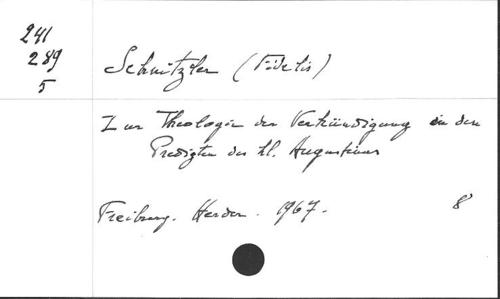 241
289
5
Schnitzler (Fidelis)
Zur Theologie der Verkündigung in den
Predigten des hl. Augustinus
Freiburg. Herder. 1967.
8